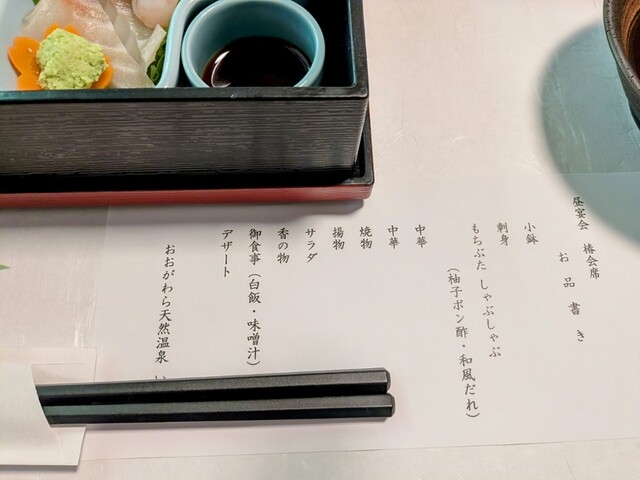 昼宴会 椿会席
お品書き
小鉢
刺身
もちぶた しゃぶしゃぶ
(柚子ポン酢・和風だれ)
中華
中華
焼物
揚物
サラダ
香の物
御食事(白飯・味噌汁)
デザート
おおがわら天然温泉 い